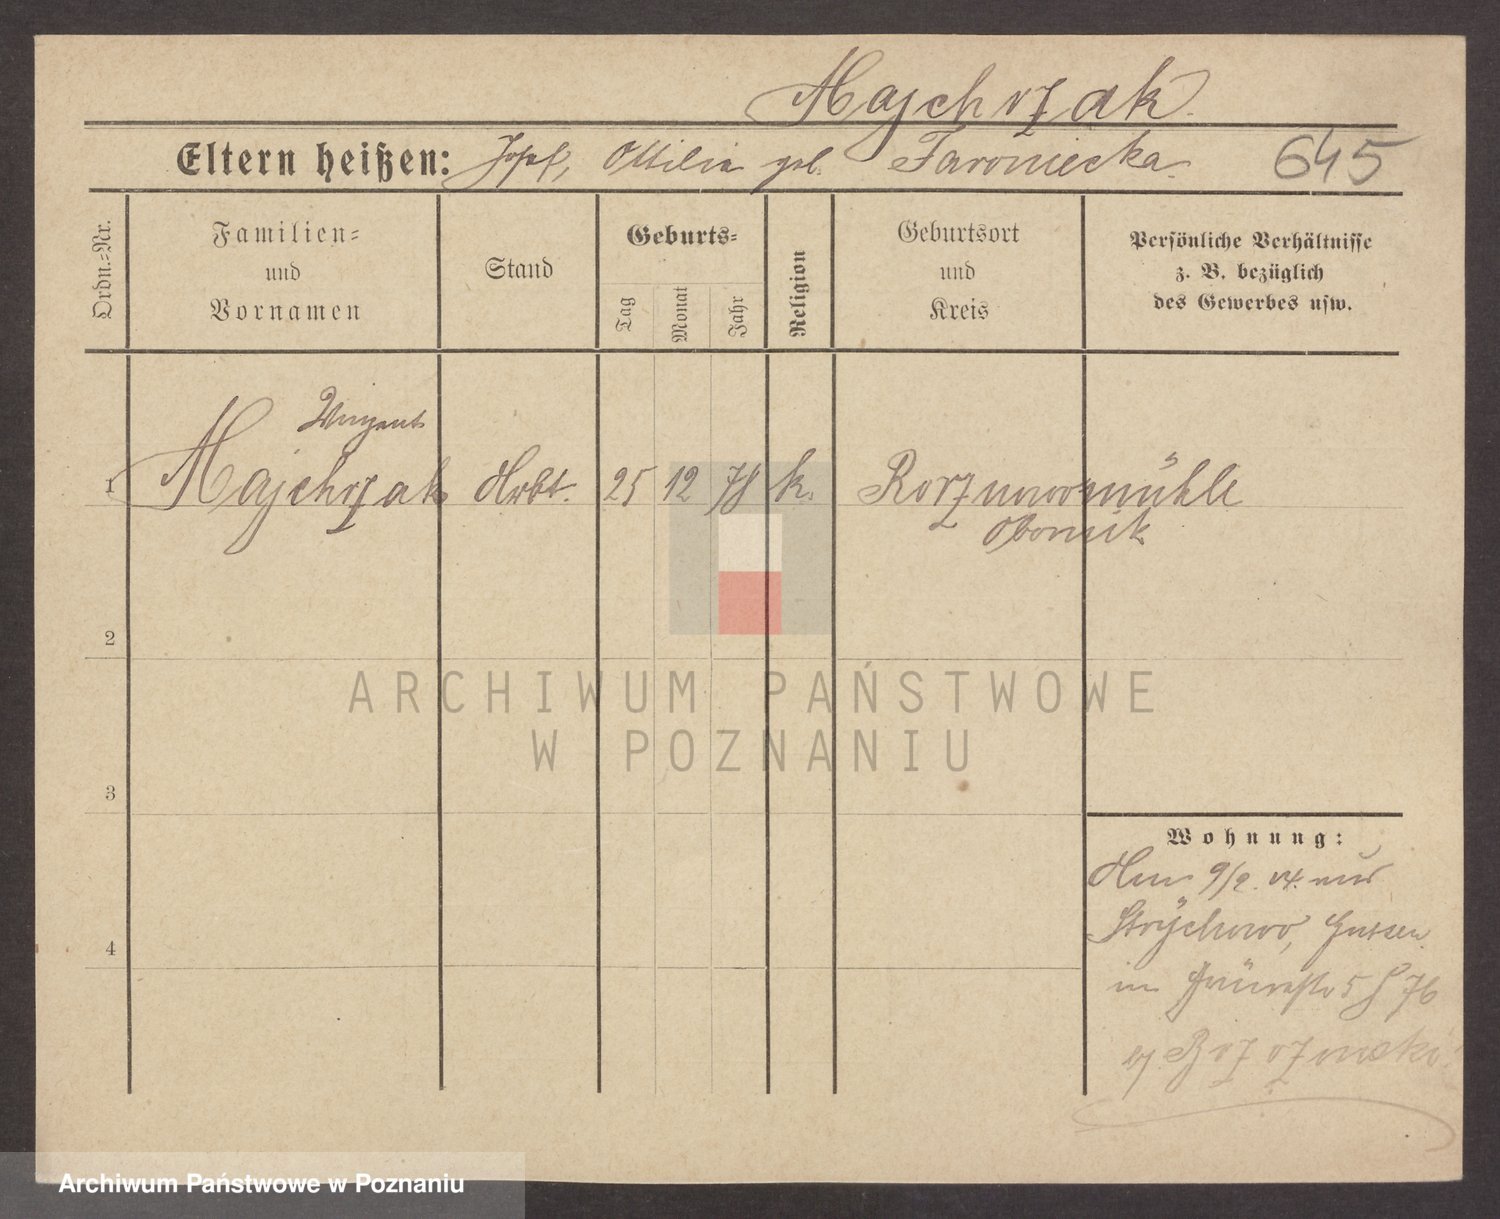 Majchrzak
Eltern heißen: Josef, Ottilie geb. Jaroniecka 645
Ordn.-Nr.
Familien-
und
Vornamen
Stand
Geburts-
Tag
Monat
Jahr
Religion
Geburtsort
und
Kreis
Persönliche Verhältnisse
z. B. bezüglich
des Gewerbes usw.
Winzent
1 Majchrzak Arbt. 25 12 78 k. Rorznowomühle
Obornik
2
ARCHIWUM PAŃSTWOWE
W POZNANIU
3
Wohnung:
9/2. 04. aus
Strÿchowo, Gnesen
in 5 76
b/ Brzozowski
4
Archiwum Państwowe w Poznaniu